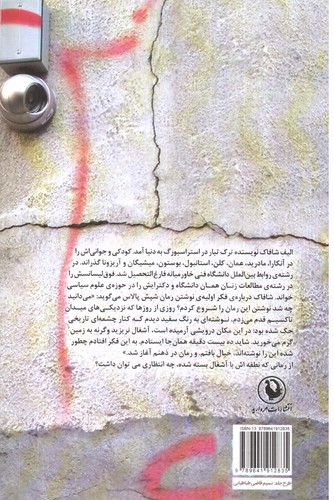 الیف شافاک نویسنده ترک تبار در استراسبورگ به دنیا آمد. کودکی و جوانی‌اش را
در آنکارا، مادرید، عمان، کلن، استانبول، بوستون، میشیگان و آریزونا گذراند. در
رشته‌ی روابط بین‌الملل دانشگاه فنی خاورمیانه فارغ‌التحصیل شد. فوق‌لیسانسش را
در رشته‌ی مطالعات زنان همان دانشگاه و دکترایش را در حوزه‌ی علوم سیاسی
خواند. شافاک درباره‌ی فکر اولیه‌ی نوشتن رمان شپش پالاس می‌گوید: «می‌دانید
چه شد نوشتن این رمان را شروع کردم؟ روزی از روزها که نزدیکی‌های میدان
تاکسیم قدم می‌زدم، نوشته‌ای به رنگ سفید دیدم که کنار چشمه‌ای تاریخی
حک شده بود: در این مکان درویشی آرمیده است، آشغال نریزید وگرنه به زمین
گرم می‌خورید. شاید ده بیست دقیقه همان‌جا ایستادم. به این فکر افتادم چطور
شده این را نوشته‌اند. خیال بافتم. و رمان در ذهنم آغاز شد.»
از رمانی که نطفه اش با آشغال بسته شده، چه انتظاری می توان داشت؟
انتشارات مروارید
ISBN-13: 9789641912835
9 789641 912835
طرح جلد: نسیم قاضی طباطبایی